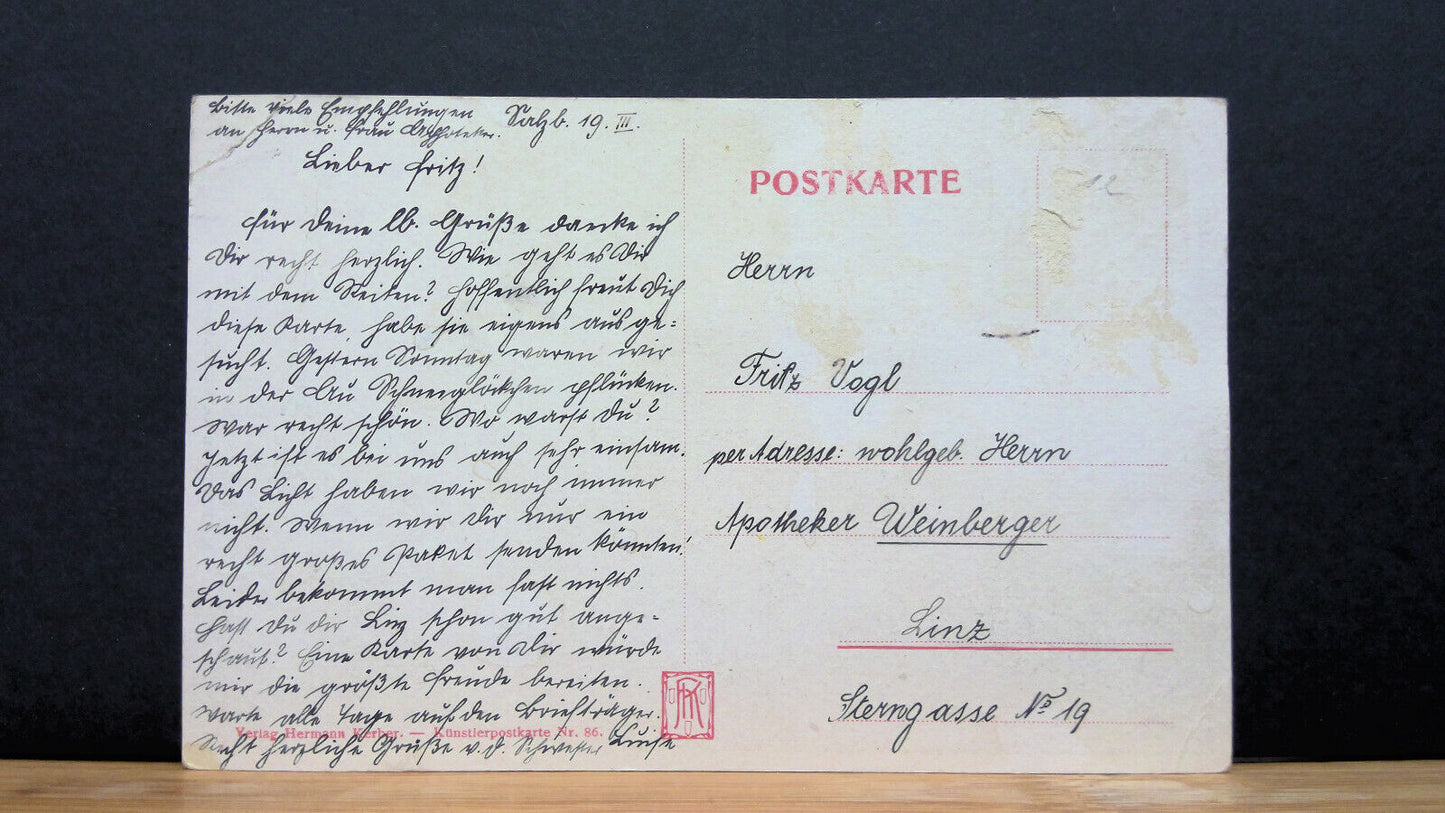 Bitte viele Empfehlungen
an Herrn u. Frau Apotheker.
Salzb. 19. III.
Lieber Fritz!
Für Deine lb. Grüße danke ich
Dir recht herzlich. Wie geht es Dir
mit dem Reiten? Hoffentlich freut Dich
diese Karte, habe sie eigens ausge=
sucht. Gestern Sonntag waren wir
in der Au Schneeglöckchen pflücken.
War recht schön. Wo warst Du?
Jetzt ist es bei uns auch sehr einsam.
Das Licht haben wir noch immer
nicht. Wenn wir Dir nur ein
recht großes Paket senden könnten!
Leider bekommt man fast nichts.
Hast Du dir Linz schon gut ange=
schaut? Eine Karte von Dir würde
mir die größte Freude bereiten.
Warte alle Tage auf den Briefträger.
Recht herzliche Grüße v. d. Schwester Luise
Verlag Hermann Kerber. — Künstlerpostkarte Nr. 86.
HK
POSTKARTE
12
Herrn
Fritz Vogl
per Adresse: wohlgeb. Herrn
Apotheker Weinberger
Linz
Sterngasse No 19